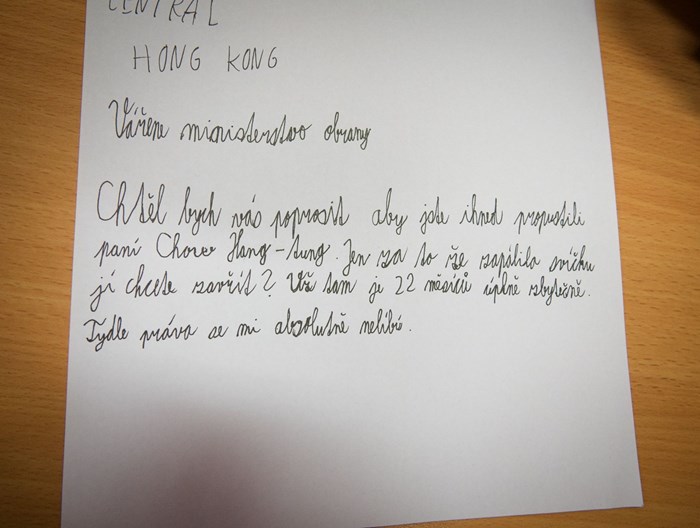 CENTRAL
HONG KONG
Vážene ministerstvo obrany
Chtěl bych vás poprosit aby jste ihned propustili
paní Chow Hang-tung. Jen za to že zapálila svíčku
jí chcete zavřít? Už tam je 22 měsíců úplně zbytečně.
Tydle práva se mi absolutně nelíbí.